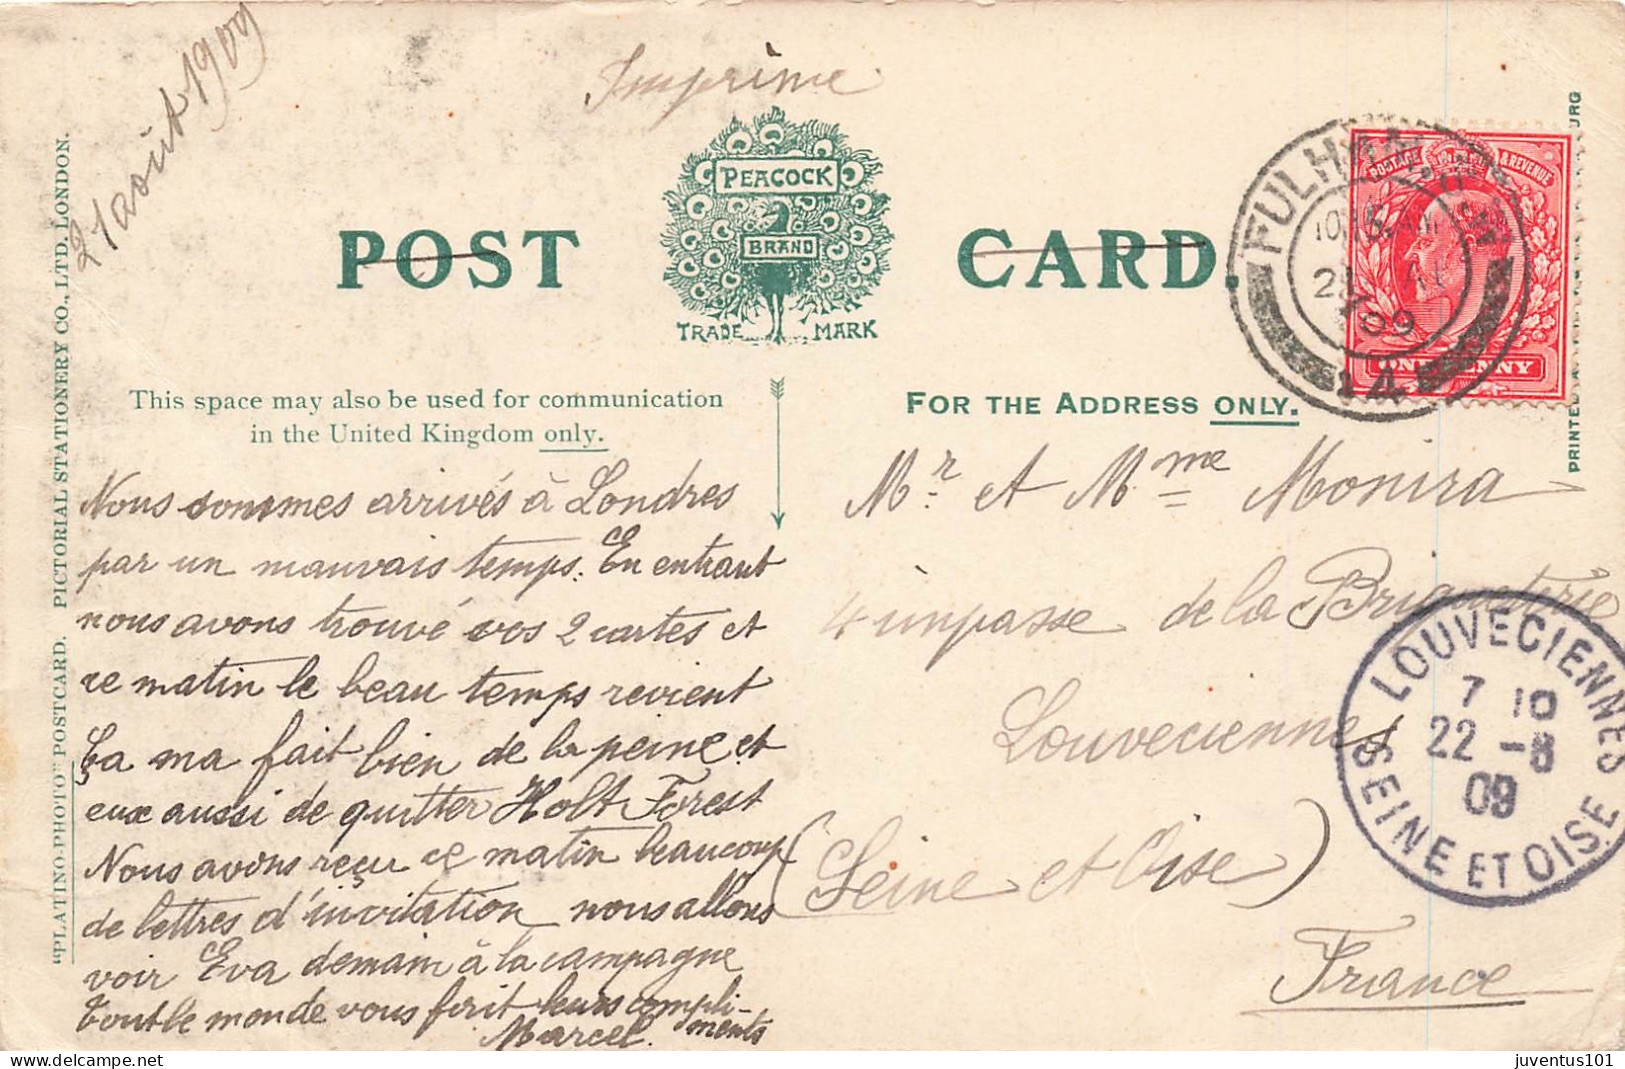 21 août 1909
Imprimé
PEACOCK
BRAND
TRADE MARK
POST CARD.
POSTAGE & REVENUE
ONE PENNY
FULHAM
10.15 AM
09
"PLATINO-PHOTO" POSTCARD. PICTORIAL STATIONERY CO., LTD. LONDON.
PRINTED
URG
This space may also be used for communication
in the United Kingdom only.
FOR THE ADDRESS ONLY.
Nous sommes arrivés à Londres
par un mauvais temps. En entrant
nous avons trouvé vos 2 cartes et
ce matin le beau temps revient
Ça ma fait bien de la peine et
eux aussi de quitter Holt Forest
Nous avons reçu ce matin beaucoup
de lettres d'invitation nous allons
voir Eva demain à la campagne
tout le monde vous font leurs compli-
ments
Marcel.
Mr. et Mme Monira
4 impasse de la Briqueterie
Louveciennes
(Seine et Oise)
France
LOUVECIENNES
7 10
22 -8
09
SEINE ET OISE
juventus101